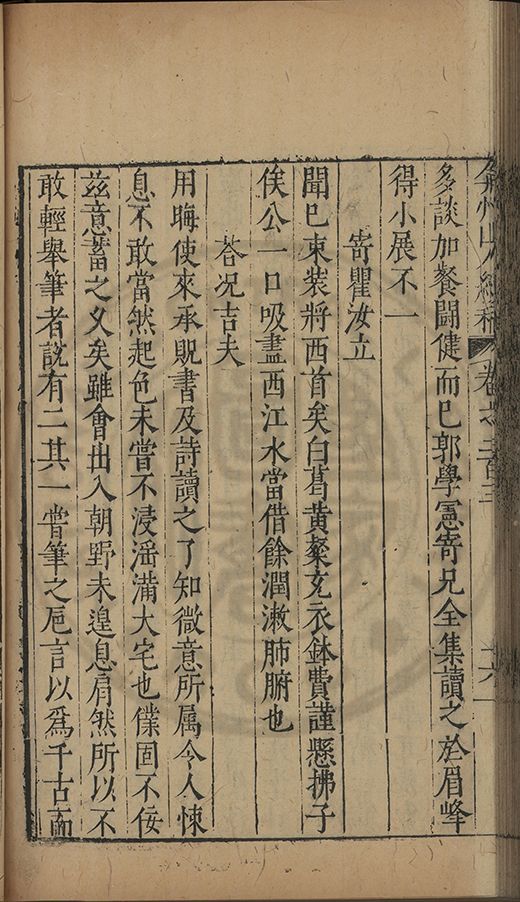 弇州山人續稿 卷之二百三
多談加餐鬪健而已郭學憲寄兄全集讀之於眉峰
得小展不一
寄瞿汝立
聞已束裝將西首矣白葛黃粲充衣鉢費謹懸拂子
俟公一口吸盡西江水當借餘潤漱肺腑也
答况吉夫
用晦使來承貺書及詩讀之了知微意所属今人悚
息不敢當然起色未嘗不浸滛滿大宅也僕固不佞
茲意蓄之乆矣雖會出入朝野未遑息肩然所以不
敢輕舉筆者說有二其一嘗筆之卮言以爲千古而